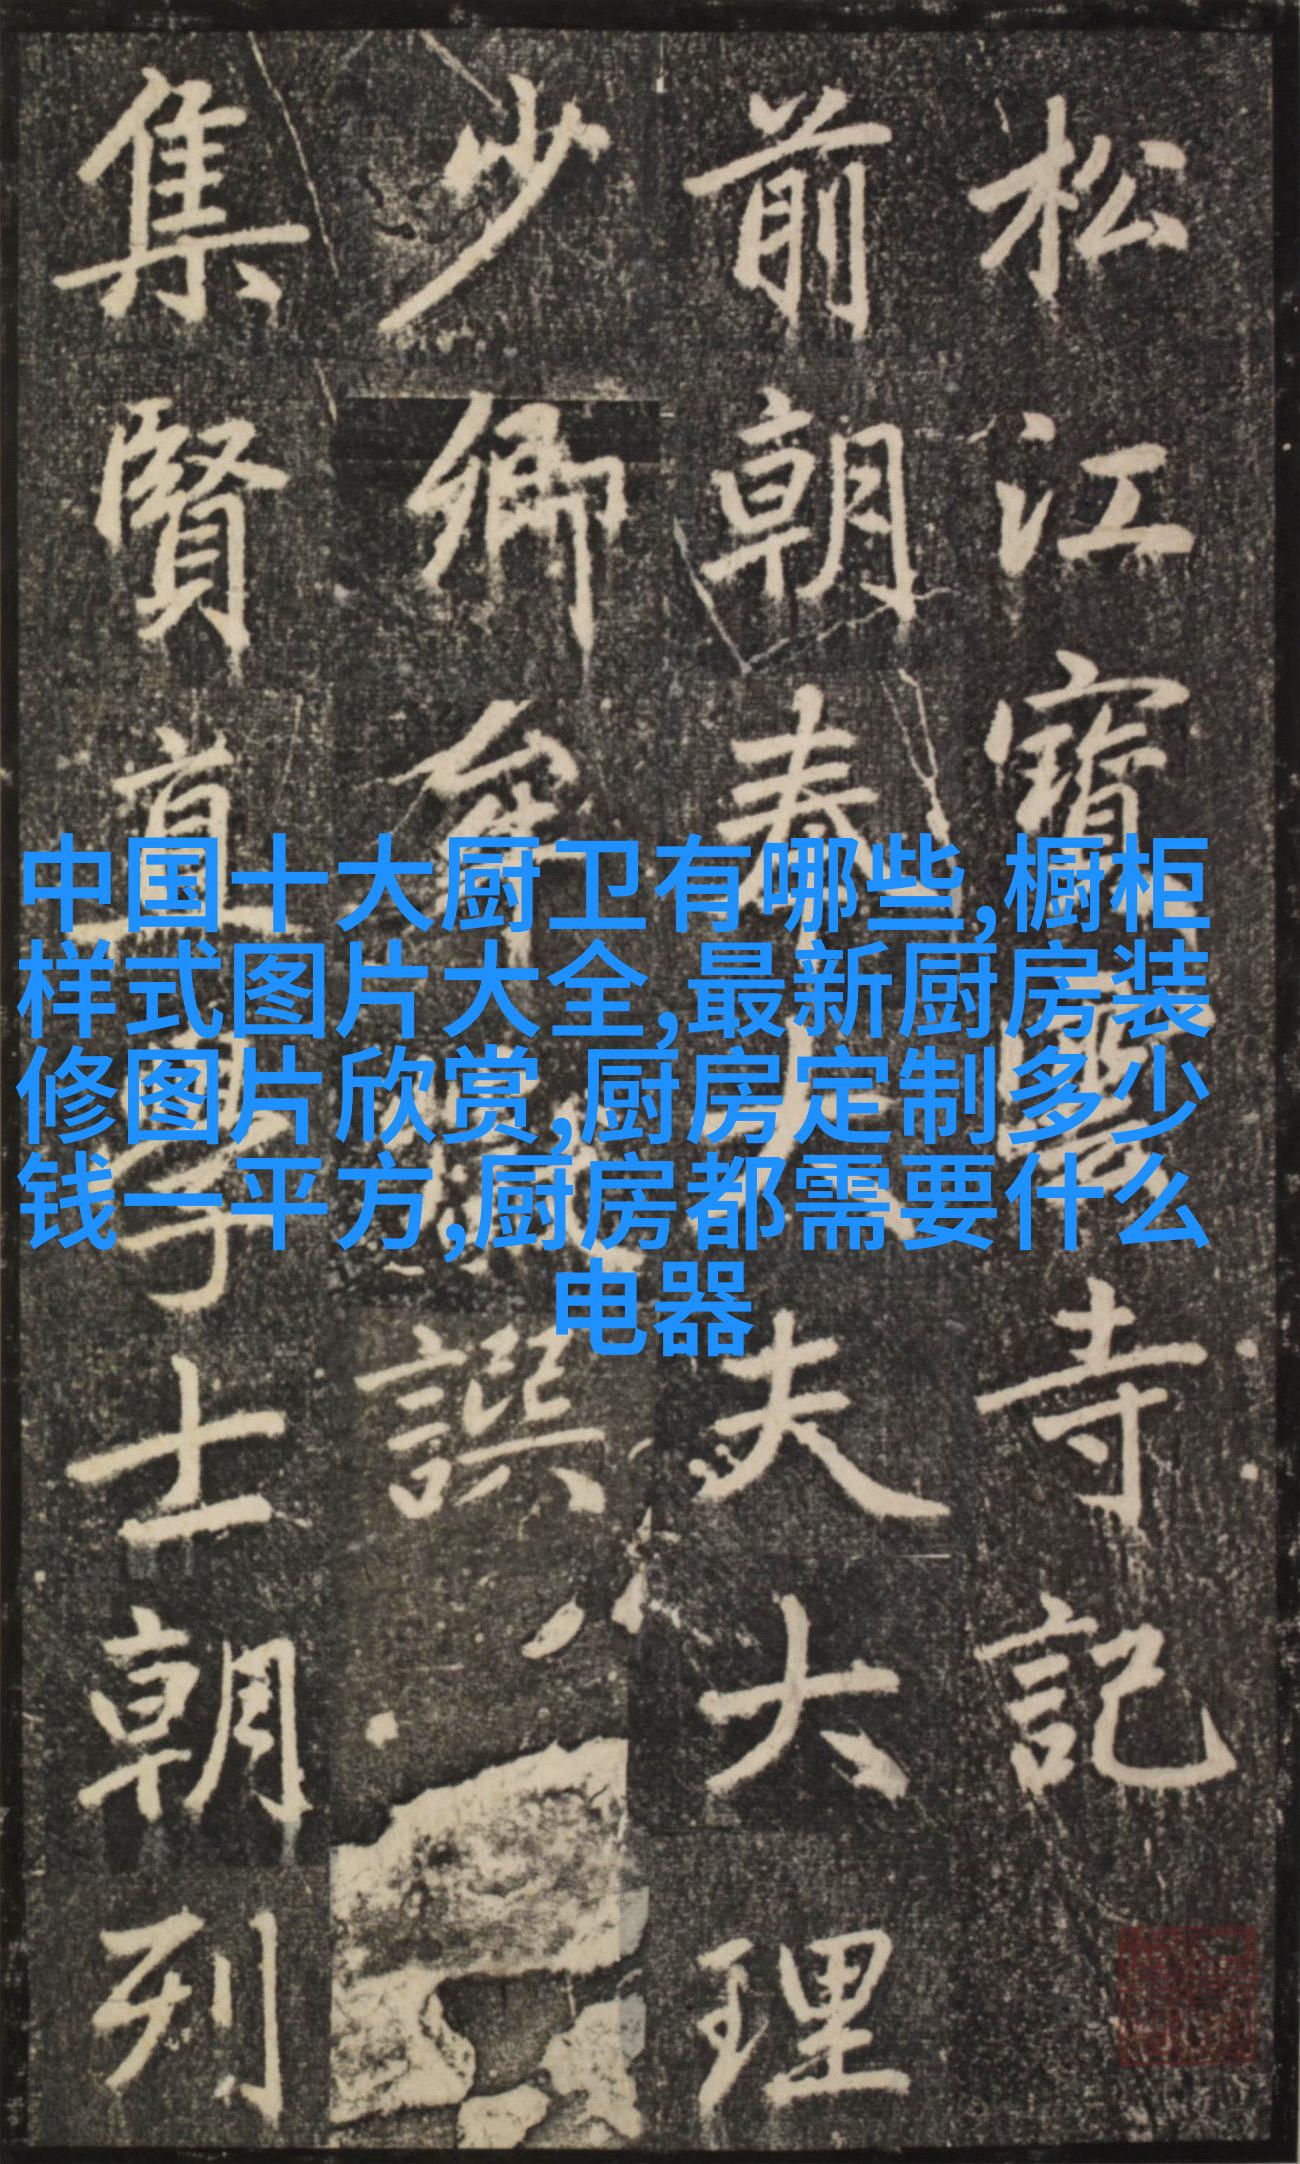 松江寶雲寺記
前朝奉大夫大理
少卿牟巘譔
集賢直學士朝列
中国十大厨卫有哪些,橱柜
样式图片大全,最新厨房装
修图片欣赏,厨房定制多少
钱一平方,厨房都需要什么
电器